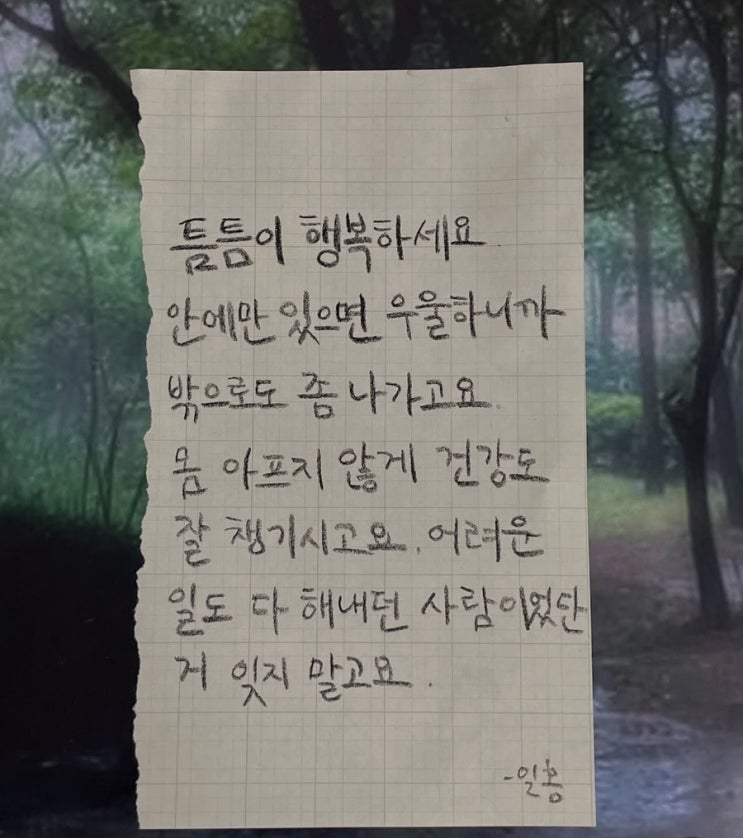 틈틈이 행복하세요.
안에만 있으면 우울하니까
밖으로도 좀 나가고요.
몸 아프지 않게 건강도
잘 챙기시고요. 어려운
일도 다 해내던 사람이었단
거 잊지 말고요.
-일홍